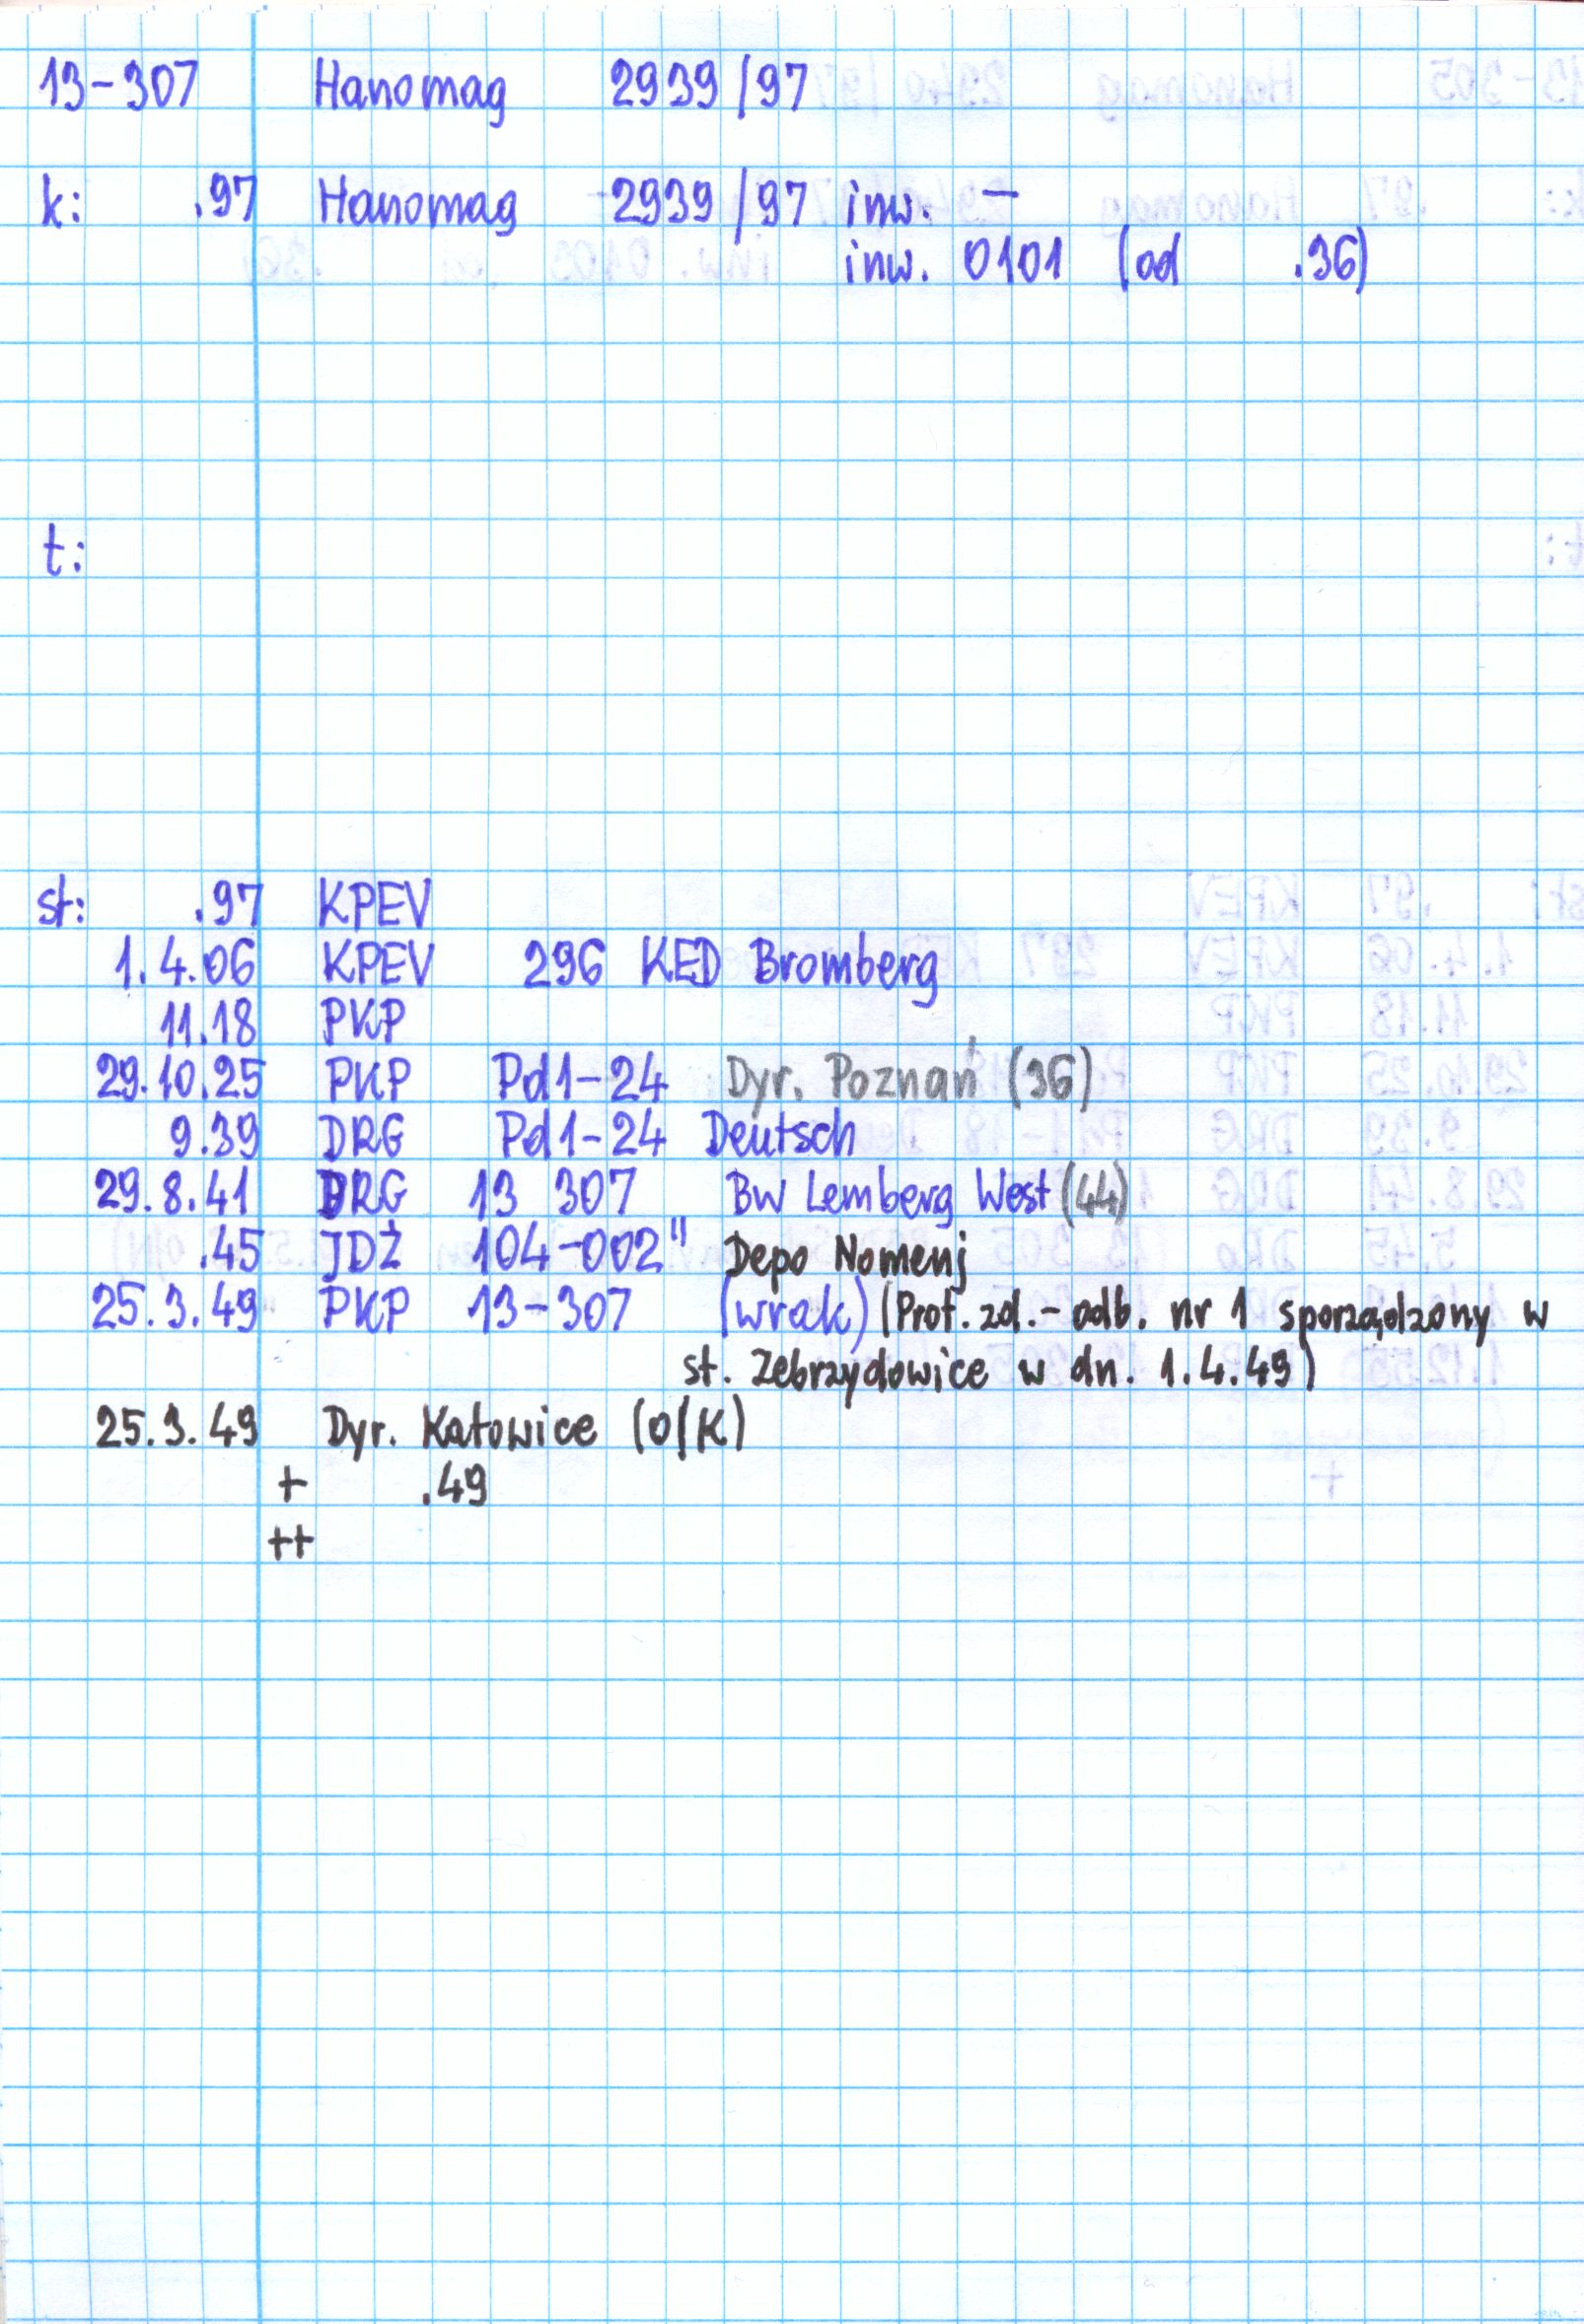 13-307 Hanomag 2939/97
k: .97 Hanomag 2939/97 inw. —
inw. 0101 (od .36)
t:
st: .97 KPEV
1.4.06 KPEV 296 KED Bromberg
11.18 PKP
29.10.25 PKP Pd1-24 Dyr. Poznań (36)
9.39 DRG Pd1-24 Deutsch
29.8.41 DRG 13 307 BW Lemberg West (44)
.45 JDŻ 104-002" Depo Nomenj
25.3.49 PKP 13-307 (wrak) (Prot. zd.-odb. nr 1 sporządzony w
st. Zebrzydowice w dn. 1.4.49)
25.3.49 Dyr. Katowice (O/K)
+ .49
++